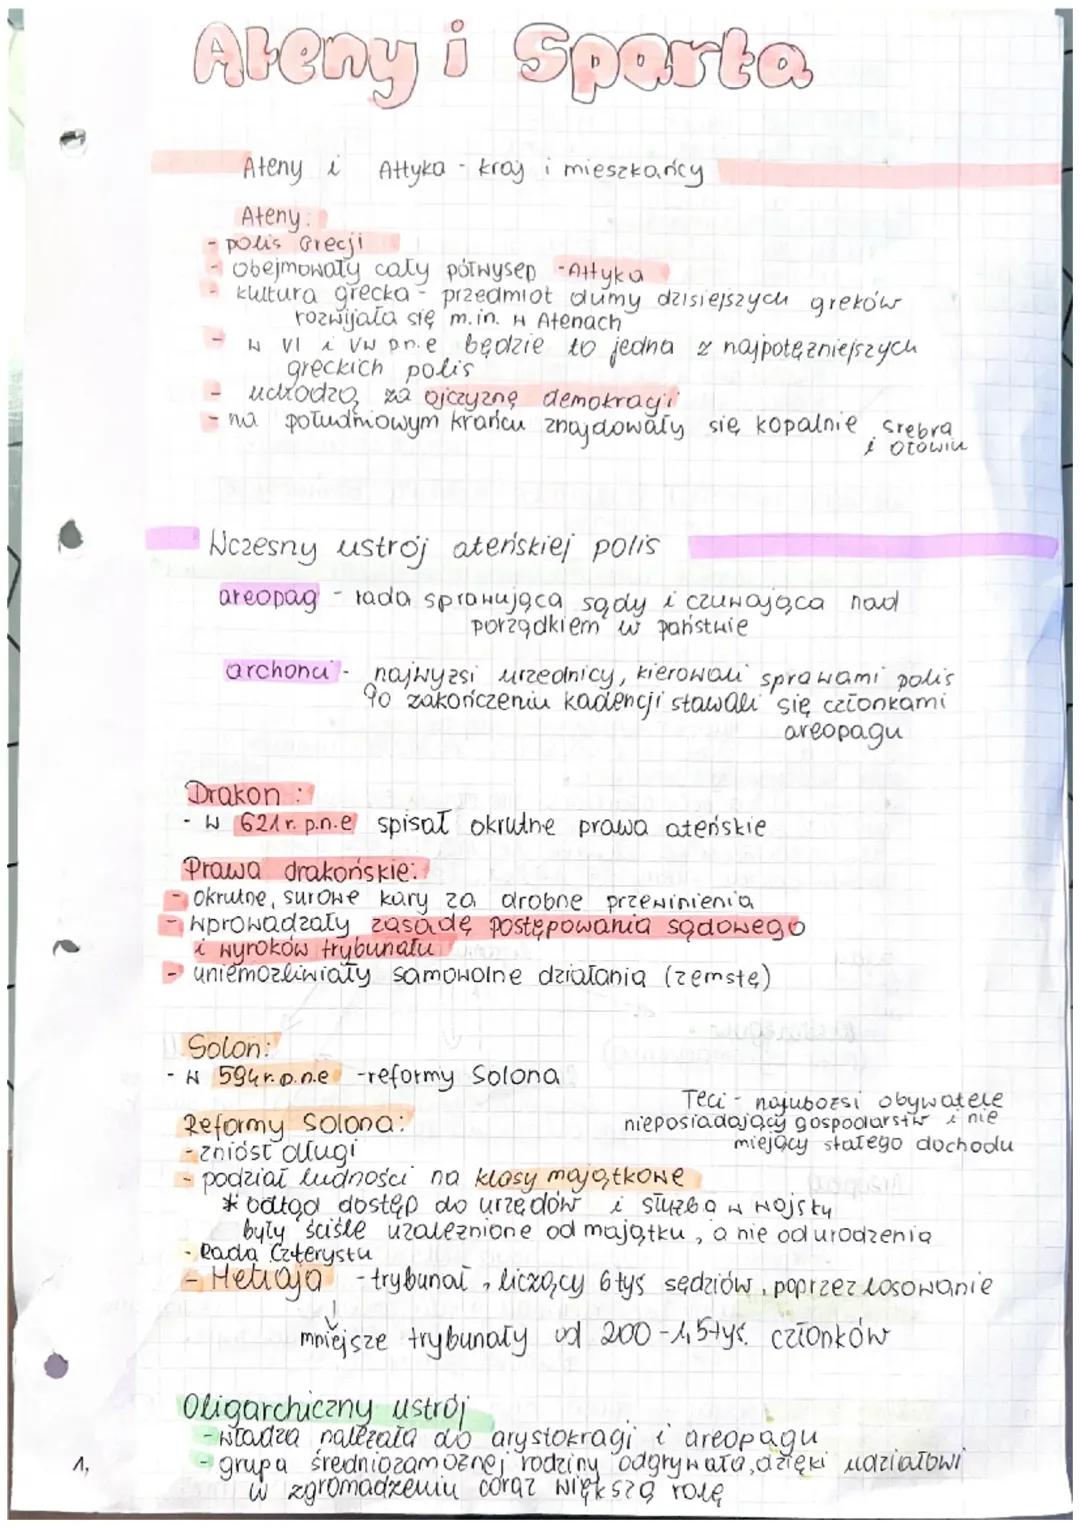 Ateny i Sparta
Ateny i Attyka - kraj i mieszkańcy
Ateny:
- polis Grecji
- obejmowały cały półwysep - Attyka
- kultura grecka - przedmiot dumy dzisiejszych greków
rozwijała się m.in. w Atenach
- w VI i V w p.n.e będzie to jedna z najpotężniejszych
greckich polis
- uchodzą za ojczyznę demokracji
- na południowym krańcu znajdowały się kopalnie srebra
i ołowiu
Wczesny ustrój ateńskiej polis
areopag - rada sprawująca sądy i czuwająca nad
porządkiem w państwie
archonci - najwyżsi urzędnicy, kierowali sprawami polis
Po zakończeniu kadencji stawali się członkami
areopagu
Drakon:
- w 621 r. p.n.e spisał okrutne prawa ateńskie
Prawa drakońskie:
- okrutne, surowe kary za drobne przewinienia
- wprowadzały zasadę postępowania sądowego
i wyroków trybunału
- uniemożliwiały samowolne działania (zemstę)
Solon:
- w 594 r. p.n.e - reformy Solona
Teci - najubożsi obywatele
nieposiadający gospodarstw i nie
miejący stałego dochodu
Reformy Solona:
- zniósł długi
- podział ludności na klasy majątkowe
* odtąd dostęp do urzędów i służba w wojsku
były ściśle uzależnione od majątku, a nie od urodzenia
- Rada Czterystu
- Heliaja - trybunał, liczący 6 tyś sędziów, poprzez losowanie
↓
mniejsze trybunały od 200 - 1,5 tyś. członków
Oligarchiczny ustrój
- władza należała do arystokracji i areopagu
- grupa średniozamożnej rodziny odgrywała, dzięki udziałowi
w zgromadzeniu coraz większą rolę
1,